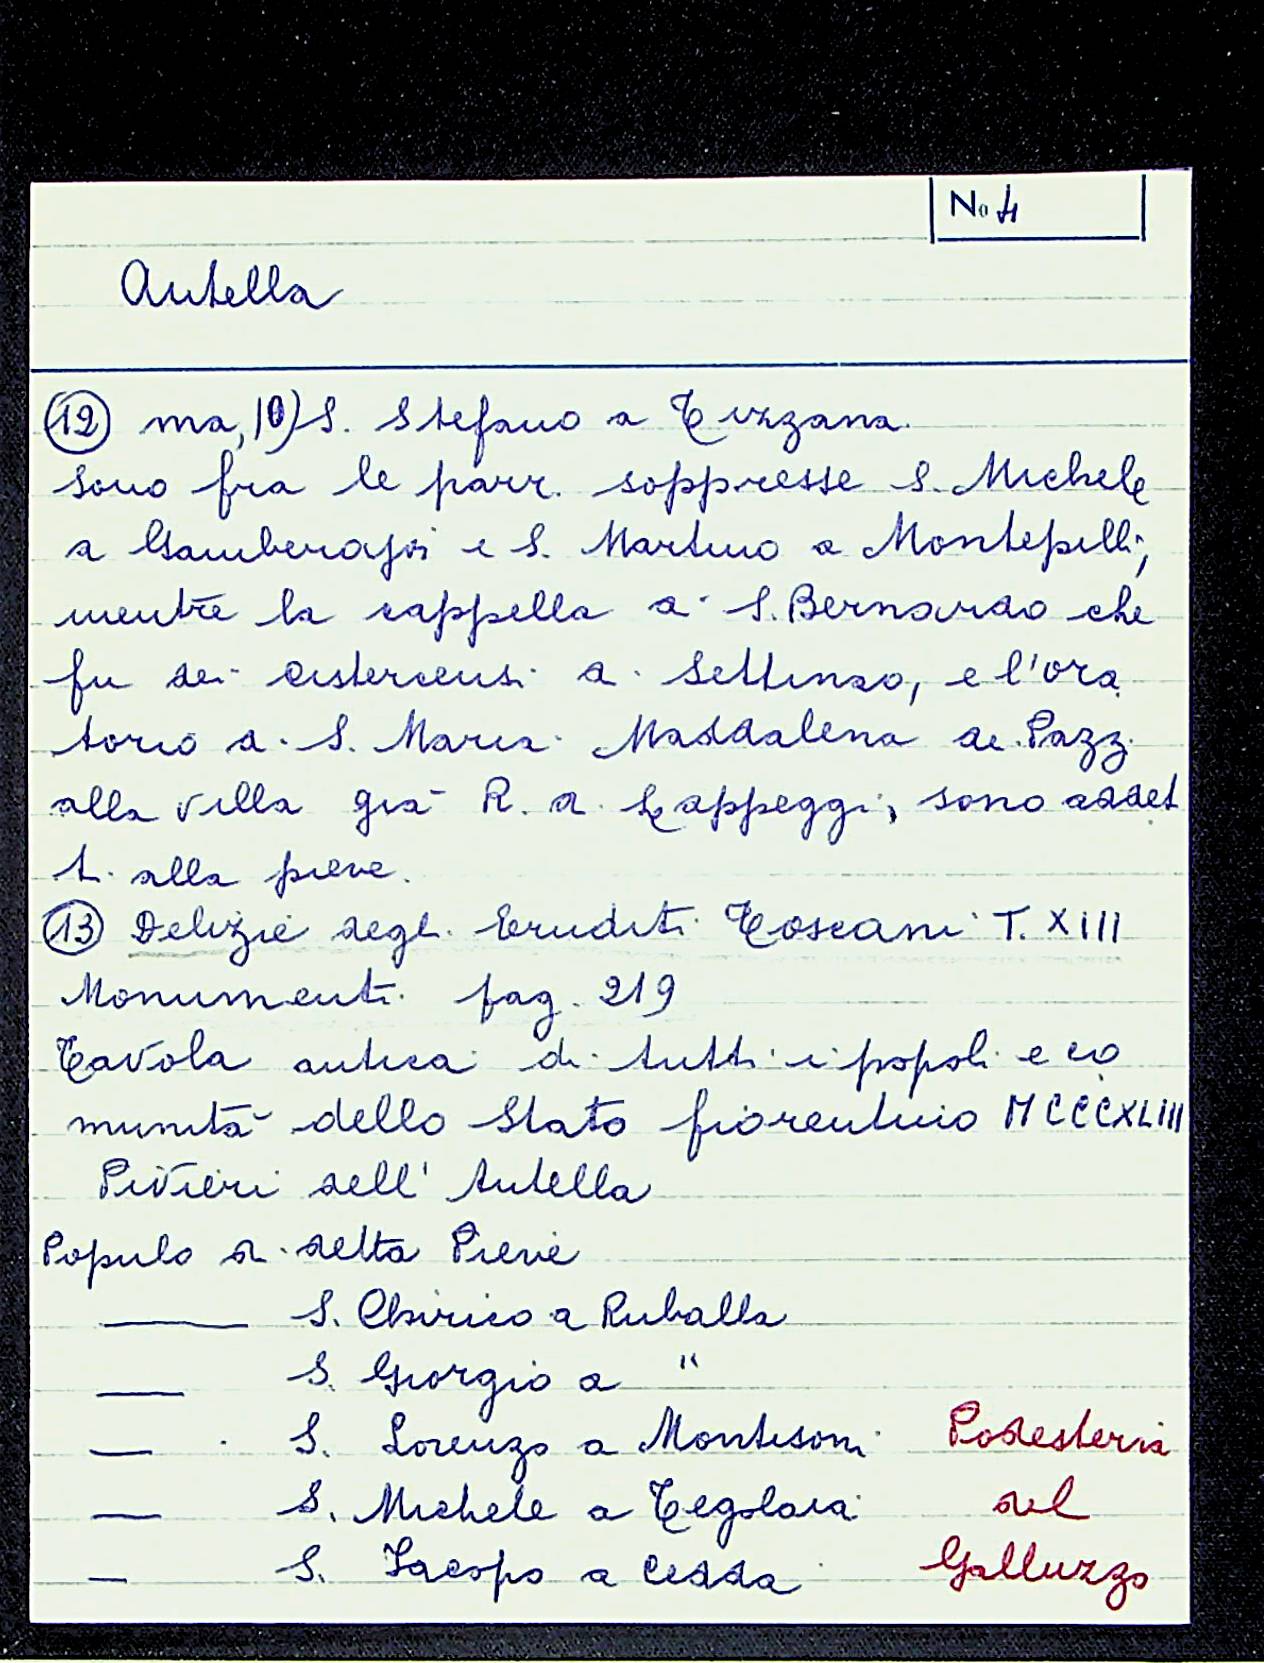 No 4
Antella
12 ma, 10) S. Stefano a Tizzana.
sono fra le parr. soppresse S. Michele
a Gamberajo e S. Martino a Montepilli,
mentre la cappella di S. Bernardo che
fu dei cistercensi di Settimo, e l'ora
torio di S. Maria Maddalena de Pazzi
alla villa già R. di Lappeggi, sono addet
ti alla pieve.
13 Delizie degli Eruditi Toscani T. XIII
Monumenti pag. 219
Tavola antica di tutti i popoli e co
munità dello Stato fiorentino MCCCXLIII
Pivieri dell' Antella
Popolo di detta Pieve
S. Chirico a Ruballa
S. Giorgio a "
S. Lorenzo a Montisoni Podesteria
S. Michele a Tegolaia del
S. Jacopo a Cedda Galluzzo